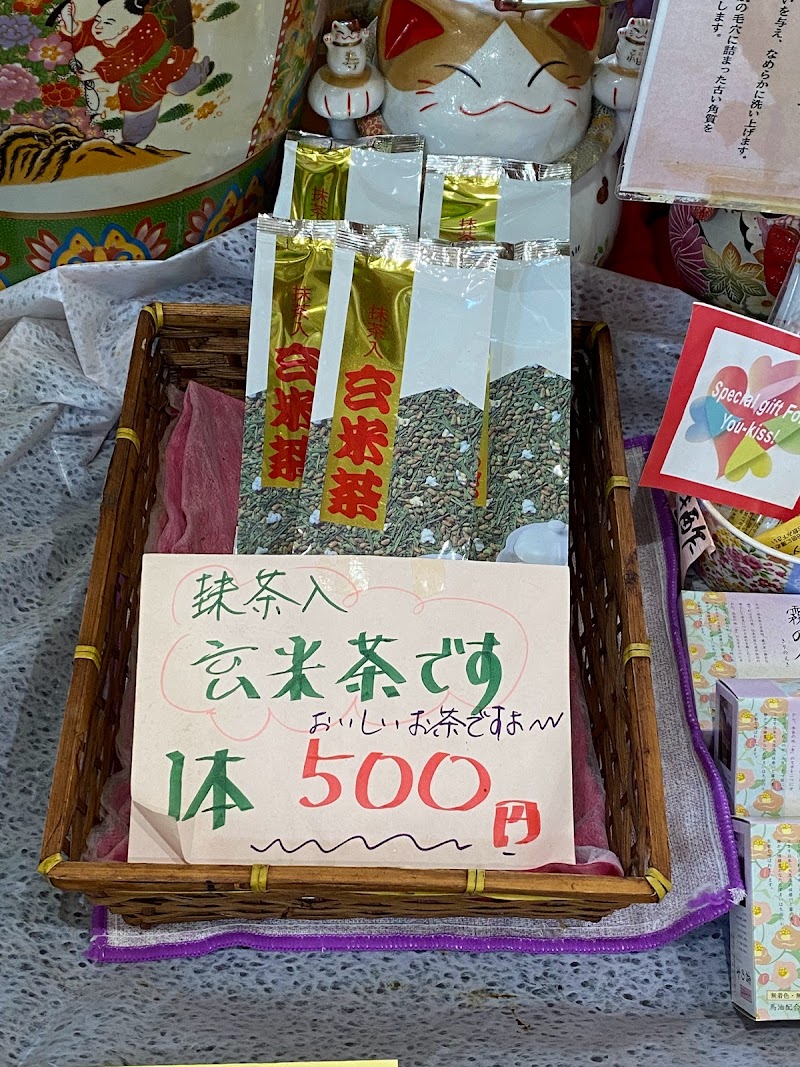 いを与え、なめらかに洗い上げます。
の毛穴に詰まった古い角質を
します。
寿
福
抹茶
抹茶
抹茶入
玄米茶
抹茶入
玄米茶
Special gift For
You-kiss!
抹茶入
玄米茶です
おいしいお茶ですよ〜
1本 500円
無着色・無
馬油配合